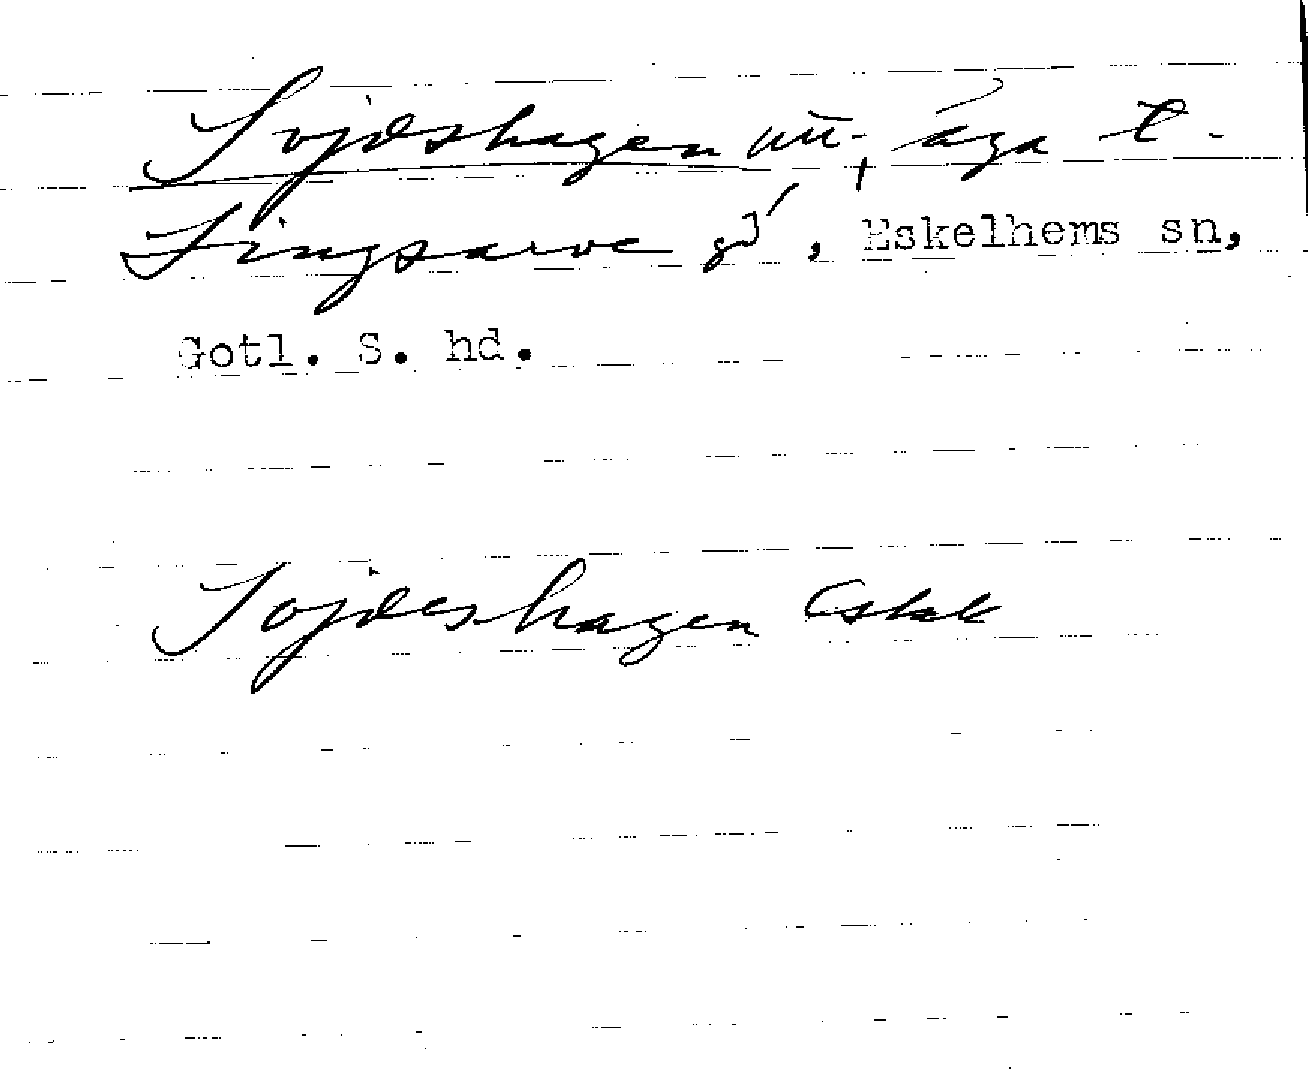 Sojdeshagen nu, äga t.
Tingsarve gd, Eskelhems sn,
Gotl. S. hd.
Sojdeshagen Eskl